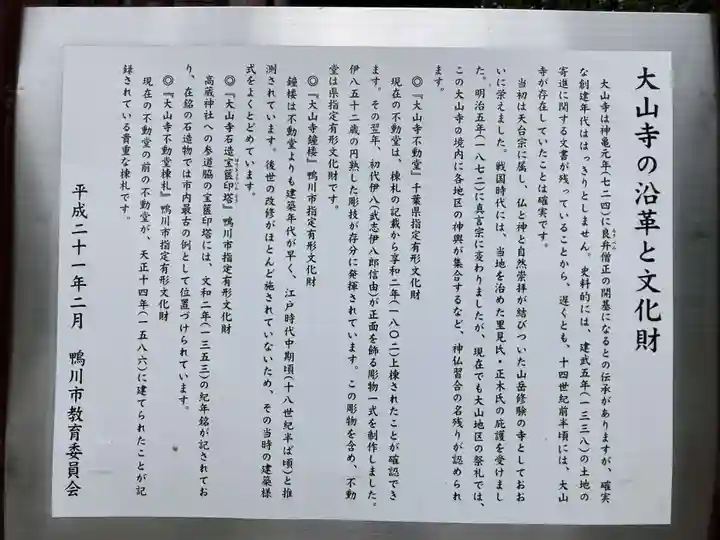 大山寺の沿革と文化財
大山寺は神亀元年(七二四)に良弁僧正の開基になるとの伝承がありますが、確実
な創建年代ははっきりとしません。史料的には、建武五年(一三三八)の土地の
寄進に関する文書が残っていることから、遅くとも、十四世紀前半頃には、大山
寺が存在していたことは確実です。
当初は天台宗に属し、仏と神と自然崇拝が結びついた山岳修験の寺としておお
いに栄えました。戦国時代には、当地を治めた里見氏・正木氏の庇護を受けまし
た。明治五年(一八七二)に真言宗に変わりましたが、現在でも大山地区の祭礼では、
この大山寺の境内に各地区の神輿が集合するなど、神仏習合の名残りが認められ
ます。
◎『大山寺不動堂』千葉県指定有形文化財
現在の不動堂は、棟札の記載から享和二年(一八〇二)上棟されたことが確認でき
ます。その翌年、初代伊八(武志伊八郎信由)が正面を飾る彫物一式を制作しました。
伊八五十二歳の円熟した彫技が存分に発揮されています。この彫物を含め、不動
堂は県指定有形文化財です。
◎『大山寺鐘楼』鴨川市指定有形文化財
鐘楼は不動堂よりも建築年代が早く、江戸時代中期頃(十八世紀半ば頃)と推
測されています。後世の改修がほとんど施されていないため、その当時の建築様
式をよくとどめています。
◎『大山寺石造宝篋印塔』鴨川市指定有形文化財
高蔵神社への参道脇の宝篋印塔には、文和二年(一三五三)の紀年銘が記されてお
り、在銘の石造物では市内最古の例として位置づけられています。
◎『大山寺不動堂棟札』鴨川市指定有形文化財
現在の不動堂の前の不動堂が、天正十四年(一五八六)に建てられたことが記
録されている貴重な棟札です。
平成二十一年二月 鴨川市教育委員会